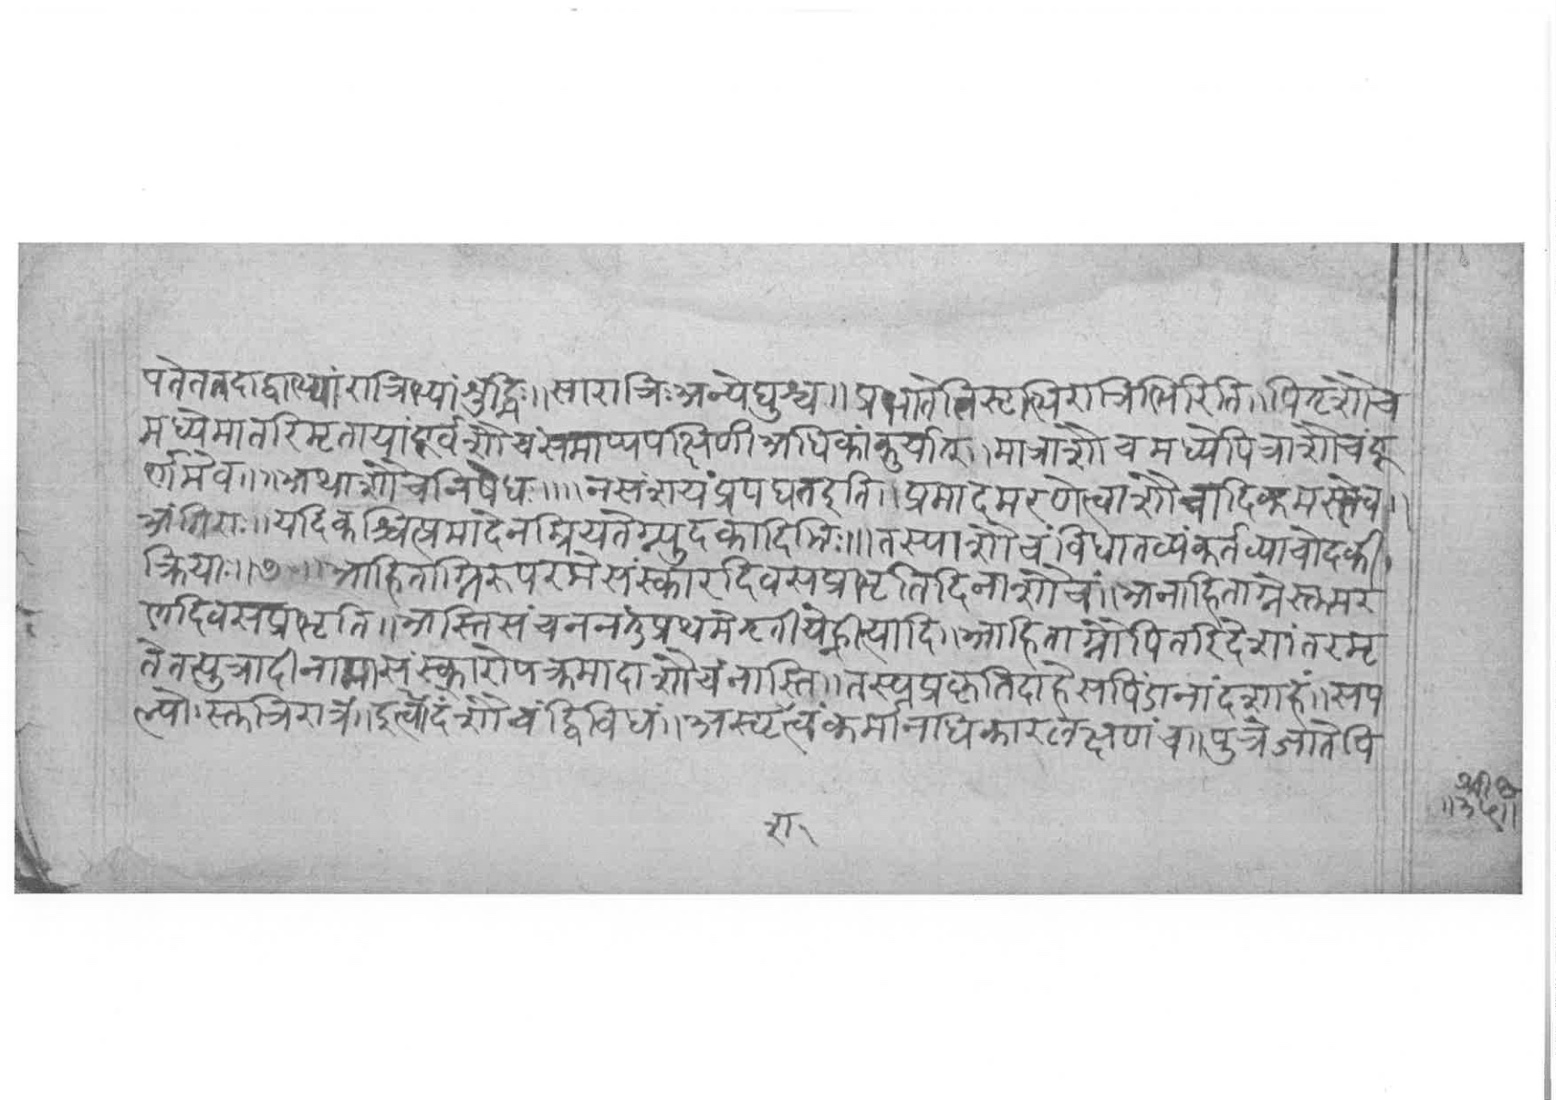 पतेततदाद्वाभ्यांरात्रिभ्यांशुद्धिः॥सारात्रिःअन्येद्युश्च॥प्रभातेतिसृभिरात्रिभिरिति॥पितृशौच
मध्येमातरिमृतायांपूर्वशौचंसमाप्यपक्षिणीअधिकांकुर्यात्॥मात्राशौचमध्येपित्राशौचंपू
र्णमेव॥॥अथाशौचनिषेधः॥॥नसंशयंप्रपद्यतइति॥प्रमादमरणेत्वाशौचादिकमस्त्येव॥
अंगिराः॥यदिकश्चित्प्रमादेनम्रियतेग्न्युदकादिभिः॥॥तस्याशौचंविधातव्यंकर्तव्याचोदकी
क्रियाः॥७॥आहिताग्निरूपरमेसंस्कारदिवसप्रभृतिदिनाशौचं॥अनाहिताग्नेस्तुमर
णदिवसप्रभृति॥अस्तिसंचननंतुप्रथमेतृतीयेह्नीत्यादि॥आहिताग्नौपितरिदेशांतरमृ
तेतत्पुत्रादीनामासंस्कारोपक्रमादाशौचंनास्ति॥तस्यप्रकृतिदाहेसपिंडानांदशाहं॥सप
त्न्योःस्तुत्रिरात्रं॥इत्थेदंशौचंद्विविधं॥अस्पृत्वंकर्मानधिकारलक्षणंच॥पुत्रेजातेपि
रा
॥३५॥